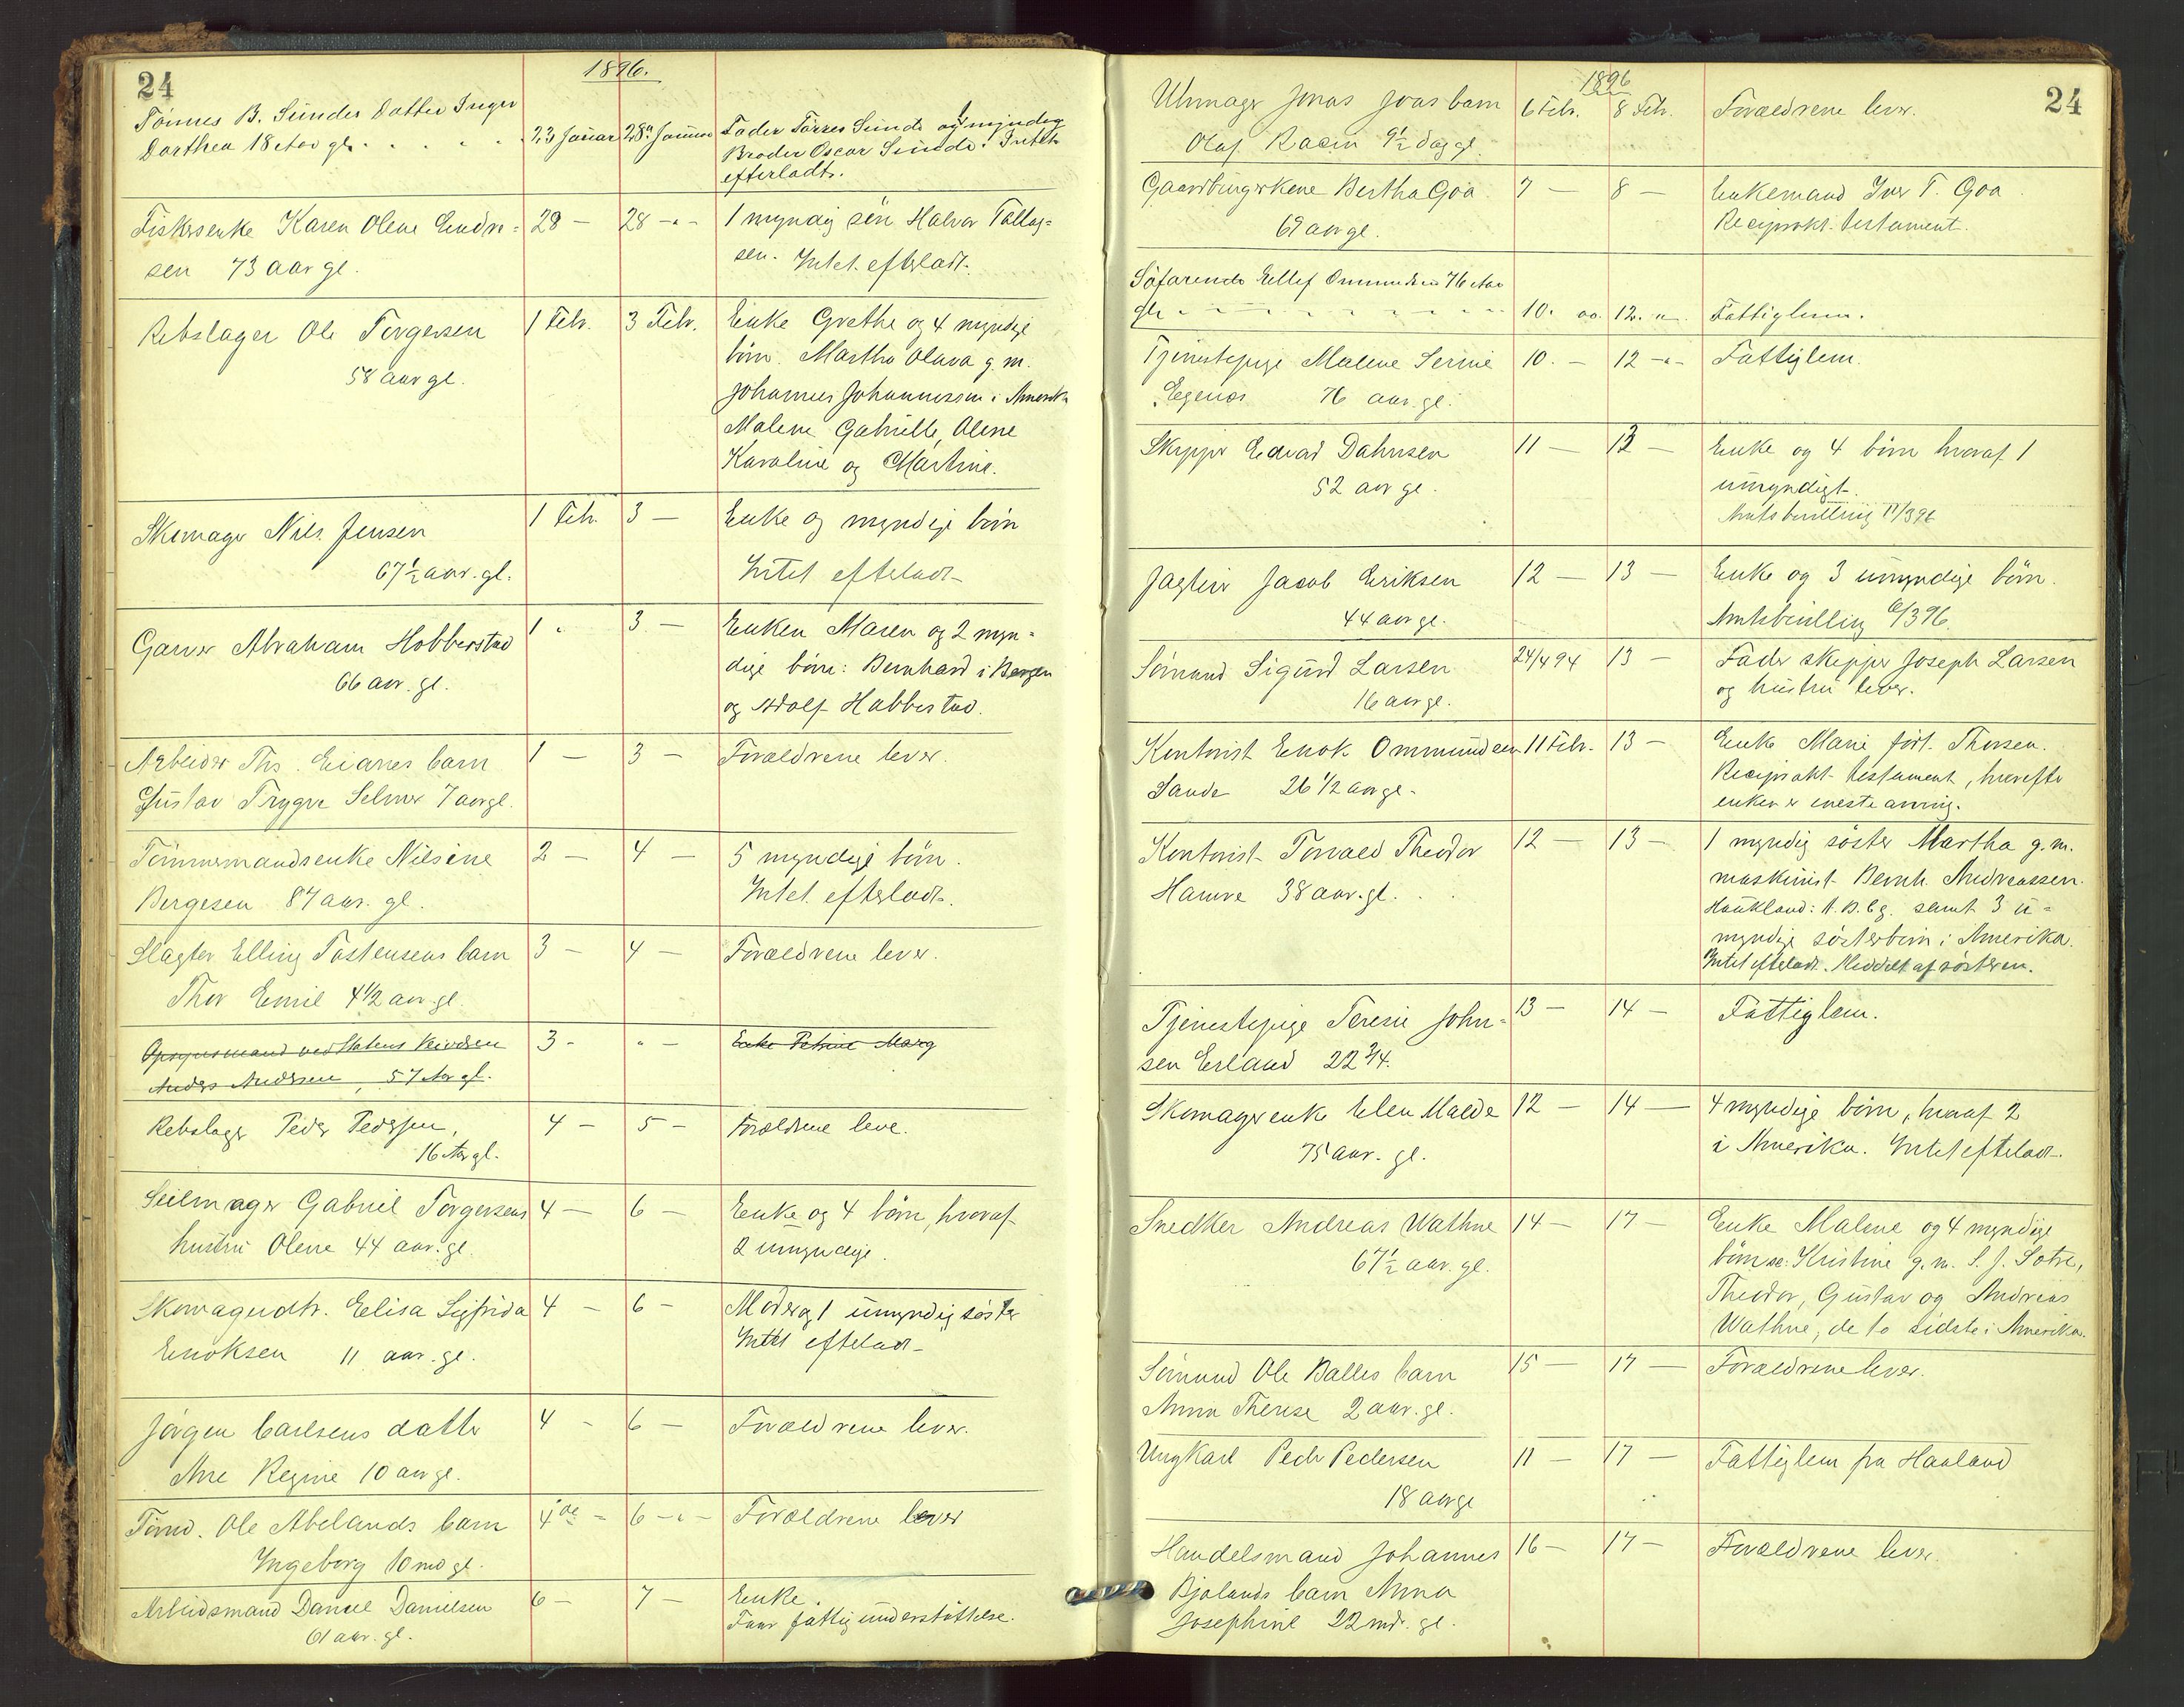 24
1896.
Tönnes B. Sundes Datter Inger
Dorthea 18 Aar gl. . . . . . 23 Januar 28de Januar Fader Tönnes Sunde og 1 myndig
Broder Oscar Sunde. Intet
efterladt.
Fiskerenke Karen Olene Endre= 28 — 28 -"- 1 myndig sön Halvor Tallag=
sen 73 aar gl. sen. Intet efterladt.
Rebslager Ole Torgersen 1 Febr. 3 Febr. Enke Grethe og 4 myndige
58 aar gl. börn. Martha Olava g. m.
Johannes Johannessen i Amerika
Malene Gabrielle, Olene
Karoline og Martine.
Skomager Nils Jensen 1 Febr. 3 — Enke og myndige börn
67½ aar. gl. Intet efterladt
Garver Abraham Hobberstad 1 " 3 — Enken Maren og 2 myn=
66 aar. gl. dige börn: Bernhard i Bergen
og Adolf Hobberstad.
Arbeider Ths. Eianes barn 1 — 3 — Forældrene lever.
Gustav Trygve Selmer 7 aar gl.
Tömmermandsenke Nilsine 2 — 4 — 5 myndige börn.
Bergesen 87 aar. gl. Intet efterladt.
Slagter Elling Tostensens barn 3 — 4 — Forældrene lever.
Thor Emil 4 1/2 aar gl.
Opsynsmand ved Statens 3 - " - Enke Petrine Marg
Anders Andersen, 57 Aar gl.
Rebslager Peder Pedersen, 4 — 5 — Forældrene leve.
16 Aar gl.
Seilmager Gabriel Torgersens 4 — 6 — Enke og 4 börn, hvoraf
hustru Olene 44 aar. gl. 2 umyndige.
Skomagerdtr. Elisa Sigfrida 4 — 6 — Moder og 1 umyndig söster
Enoksen 11 aar. gl. Intet efterladt
Jörgen Carlsens datter 4 - 6 — Forældrene lever.
Ane Regine 10 aar gl.
Tömd. Ole Abelands barn 4de - 6 -"- Forældrene lever
Ingeborg 10 md gl.
Arbeidsmand Daniel Danielsen 6 — 7 — Enke.
61 aar. gl. Faar fattigunderstöttelse.
1896
24
Uhrmager Jonas Joas barn 6 Febr. 8 Febr. Forældrene lever.
Olaf 9½ dag gl.
Gaardbrugerkone Bertha Goa 7 — 8 — Enkemand Iver T. Goa
69 aar gl. Reciprokt testament.
Söfarende Ellef Ommundsen 76 Aar
gl. 10. " 12. " Fattiglem.
Tjenestepige Malene Serine 10. — 12 -"- Fattiglem.
Egenes 76 aar. gl.
Skipper Edvard Dahnsen 11 — 13 — Enke og 4 börn hvoraf 1
52 aar gl. umyndigt.
Amtsbevilling 17/3 96
Jagteier Jacob Eriksen 12 — 13 — Enke og 3 umyndige börn.
44 aar gl. Amtsbevilling 6/3 96.
Sömand Sigurd Larsen 24/4 94 13 — Fader skipper Joseph Larsen
16 aar gl. og hustru lever.
Kontorist Enok Ommundsen 11 Febr. 13 — Enke Marie fört. Thorsen.
Sande 26 1/2 aar gl. Reciprokt testament, hvorefter
enken er eneste arving.
Kontorist Torvald Theodor 12 — 13 — 1 myndig söster Martha g. m.
Hamre 38 aar. gl. maskinist Bernh. Andreassen.
Haukland: N. B. Cg. samt 3 u=
myndige sösterbörn i Amerika.
Intet efterladt. Meddelt af sösteren.
Tjenestepige Teresie John= 13 — 14 — Fattiglem.
sen Erland 22 3/4.
Skomagerenke Elen Malde 12 — 14 — 4 myndige börn, hvoraf 2
75 aar. gl. i Amerika. Intet efterladt.
Snedker Andreas Wathne 14 — 17 — Enke Malene og 4 myndige
67½ aar. gl. börn se: Kristine g. m. S. J. Sotre,
Theodor, Gustav og Andreas
Wathne, de to sidste i Amerika.
Sömand Ole Balles barn 15 — 17 — Forældrene lever.
Anna Therese 2 aar. gl.
Ungkarl Pedr Pedersen 11 — 17 — Fattiglem fra Haaland
18 aar gl
Handelsmand Johannes 16 — 17 — Forældrene lever.
Bjelands barn Anna
Josephine 22 md. gl.